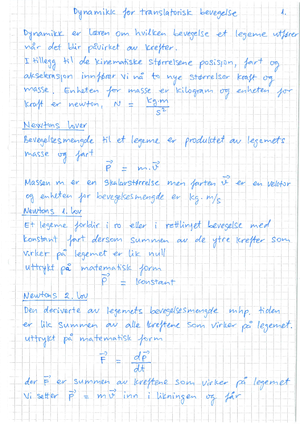 Dynamikk for translatorisk bevegelse 1.
Dynamikk er læren om hvilken bevegelse et legeme utfører
når det blir påvirket av krefter.
I tillegg til de kinematiske størrelsene posisjon, fart og
akselerasjon innfører vi nå to nye størrelser kraft og
masse. Enheten for masse er kilogram og enheten for
kraft er newton, N = kg·m/s²
Newtons lover
Bevegelsesmengde til et legeme er produktet av legemets
masse og fart
p⃗ = m·v⃗
Massen m er en skalarstørrelse men farten v⃗ er en vektor
og enheten for bevegelsesmengde er kg·m/s
Newtons 1. lov
Et legeme forblir i ro eller i rettlinjet bevegelse med
konstant fart dersom summen av de ytre krefter som
virker på legemet er lik null
uttrykt på matematisk form
p⃗ = konstant
Newtons 2. lov
Den deriverte av legemets bevegelsesmengde mhp. tiden
er lik summen av alle kreftene som virker på legemet.
uttrykt på matematisk form
F⃗ = dp⃗/dt
der F⃗ er summen av kreftene som virker på legemet
Vi setter p⃗ = mv⃗ inn i likningen og får